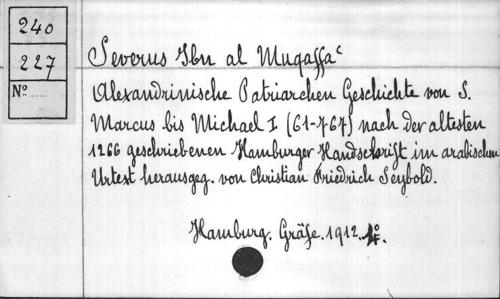 240
227
Nº
Severus Ibn al Muqaffaʿ
Alexandrinische Patriarchen Geschichte von S.
Marcus bis Michael I (61-767) nach der ältesten
1266 geschriebenen Hamburger Handschrift im arabischen
Urtext herausgeg. von Christian Friedrich Seybold.
Hamburg. Gräfe. 1912. 4º.